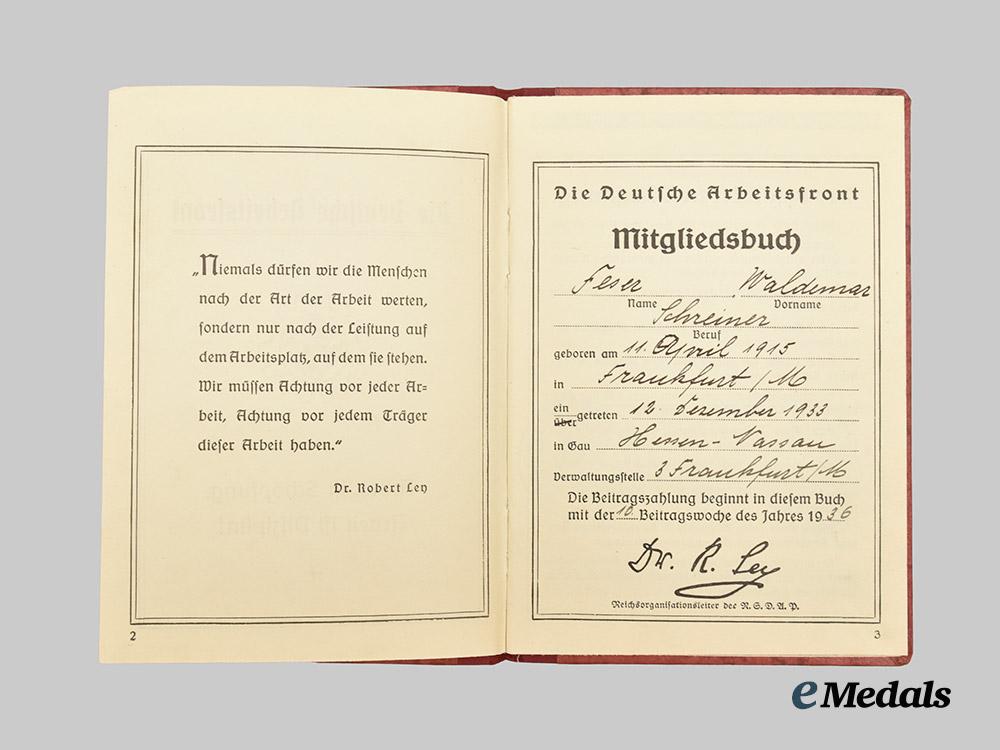 „Niemals dürfen wir die Menschen
nach der Art der Arbeit werten,
sondern nur nach der Leistung auf
dem Arbeitsplatz, auf dem sie stehen.
Wir müssen Achtung vor jeder Ar=
beit, Achtung vor jedem Träger
dieser Arbeit haben.“
Dr. Robert Ley
2
Die Deutsche Arbeitsfront
Mitgliedsbuch
Feser Waldemar
Name Vorname
Schreiner
Beruf
geboren am 11. April 1915
in Frankfurt/M
ein
über getreten 12. Dezember 1933
in Gau Hessen-Nassau
Verwaltungsstelle 3 Frankfurt/M
Die Beitragszahlung beginnt in diesem Buch
mit der 10. Beitragswoche des Jahres 1936
Dr. R. Ley
Reichsorganisationsleiter der N.S.D.A.P.
3
eMedals